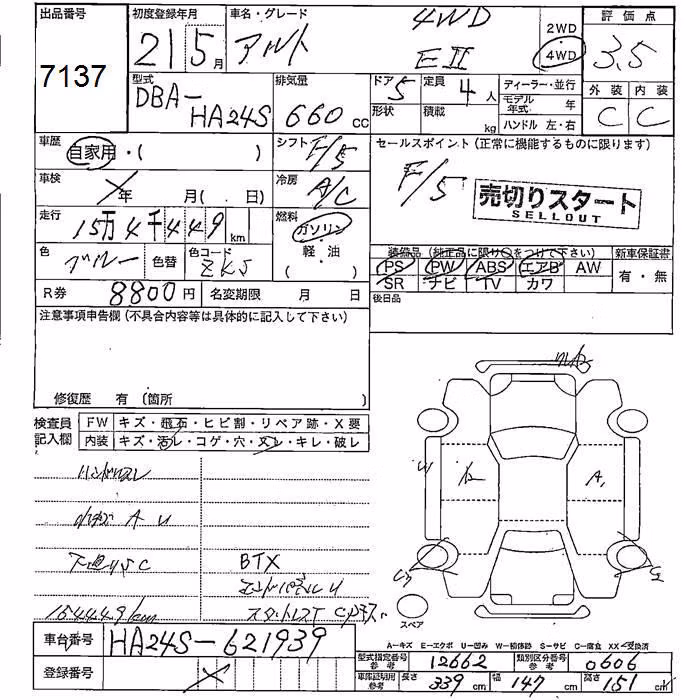 出品番号 7137
初度登録年月 21 5月
車名・グレード アルト 4WD EⅡ
2WD 4WD
評価点 3.5
外装 C 内装 C
型式 DBA-HA24S
排気量 660 cc
ドア 5 定員 4人
形状 積載 kg
ディーラー・並行
モデル年式 年
ハンドル 左・右
車歴 自家用・( )
シフト F/5
セールスポイント (正常に機能するものに限ります)
F/5
売切りスタート
SELLOUT
車検 年 月( 日)
冷房 A/C
走行 15万4千449 km
燃料 ガソリン 軽・油 ( )
色 ブルー 色替 色コード ZKJ
R券 8800円 名変期限 月 日
装備品 (純正品に限り○をつけて下さい) 新車保証書
PS PW ABS エアB AW 有・無
SR ナビ TV カワ
後日品
注意事項申告欄 (不具合内容等は具体的に記入して下さい)
修復歴 有 (箇所 )
検査員記入欄
FW キズ・飛石・ヒビ割・リペア跡・X要
内装 キズ・汚レ・コゲ・穴・スレ・キレ・破レ
ハンドルスレ
A U
下廻りS C BTX
154449km
A
スペア
車台番号 HA24S-621939
登録番号
A-キズ E-エクボ U-凹み W-補修跡 S-サビ C-腐食 XX-交換済
型式指定番号 参考 12662 類別区分番号 参考 0606
車庫証明用 参考 長さ 339 cm 幅 147 cm 高さ 151 cm